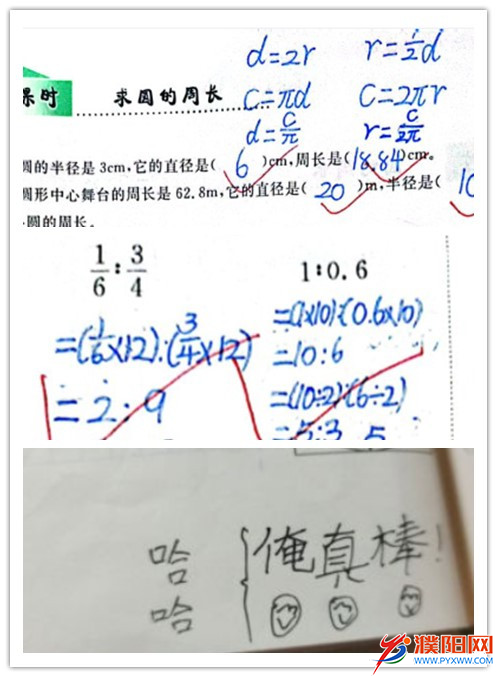 d=2r r=1/2d
课时 求圆的周长 C=πd C=2πr
d=C/π r=C/2π
圆的半径是3cm,它的直径是( 6 )cm,周长是(18.84)cm。
圆形中心舞台的周长是62.8m,它的直径是( 20 )m,半径是( 10
圆的周长。
1/6:3/4
=(1/6×12):(3/4×12)
=2:9
1:0.6
=(1×10):(0.6×10)
=10:6
=(10÷2):(6÷2)
=5:3
哈哈{俺真棒!
濮阳网
www.pyxww.com